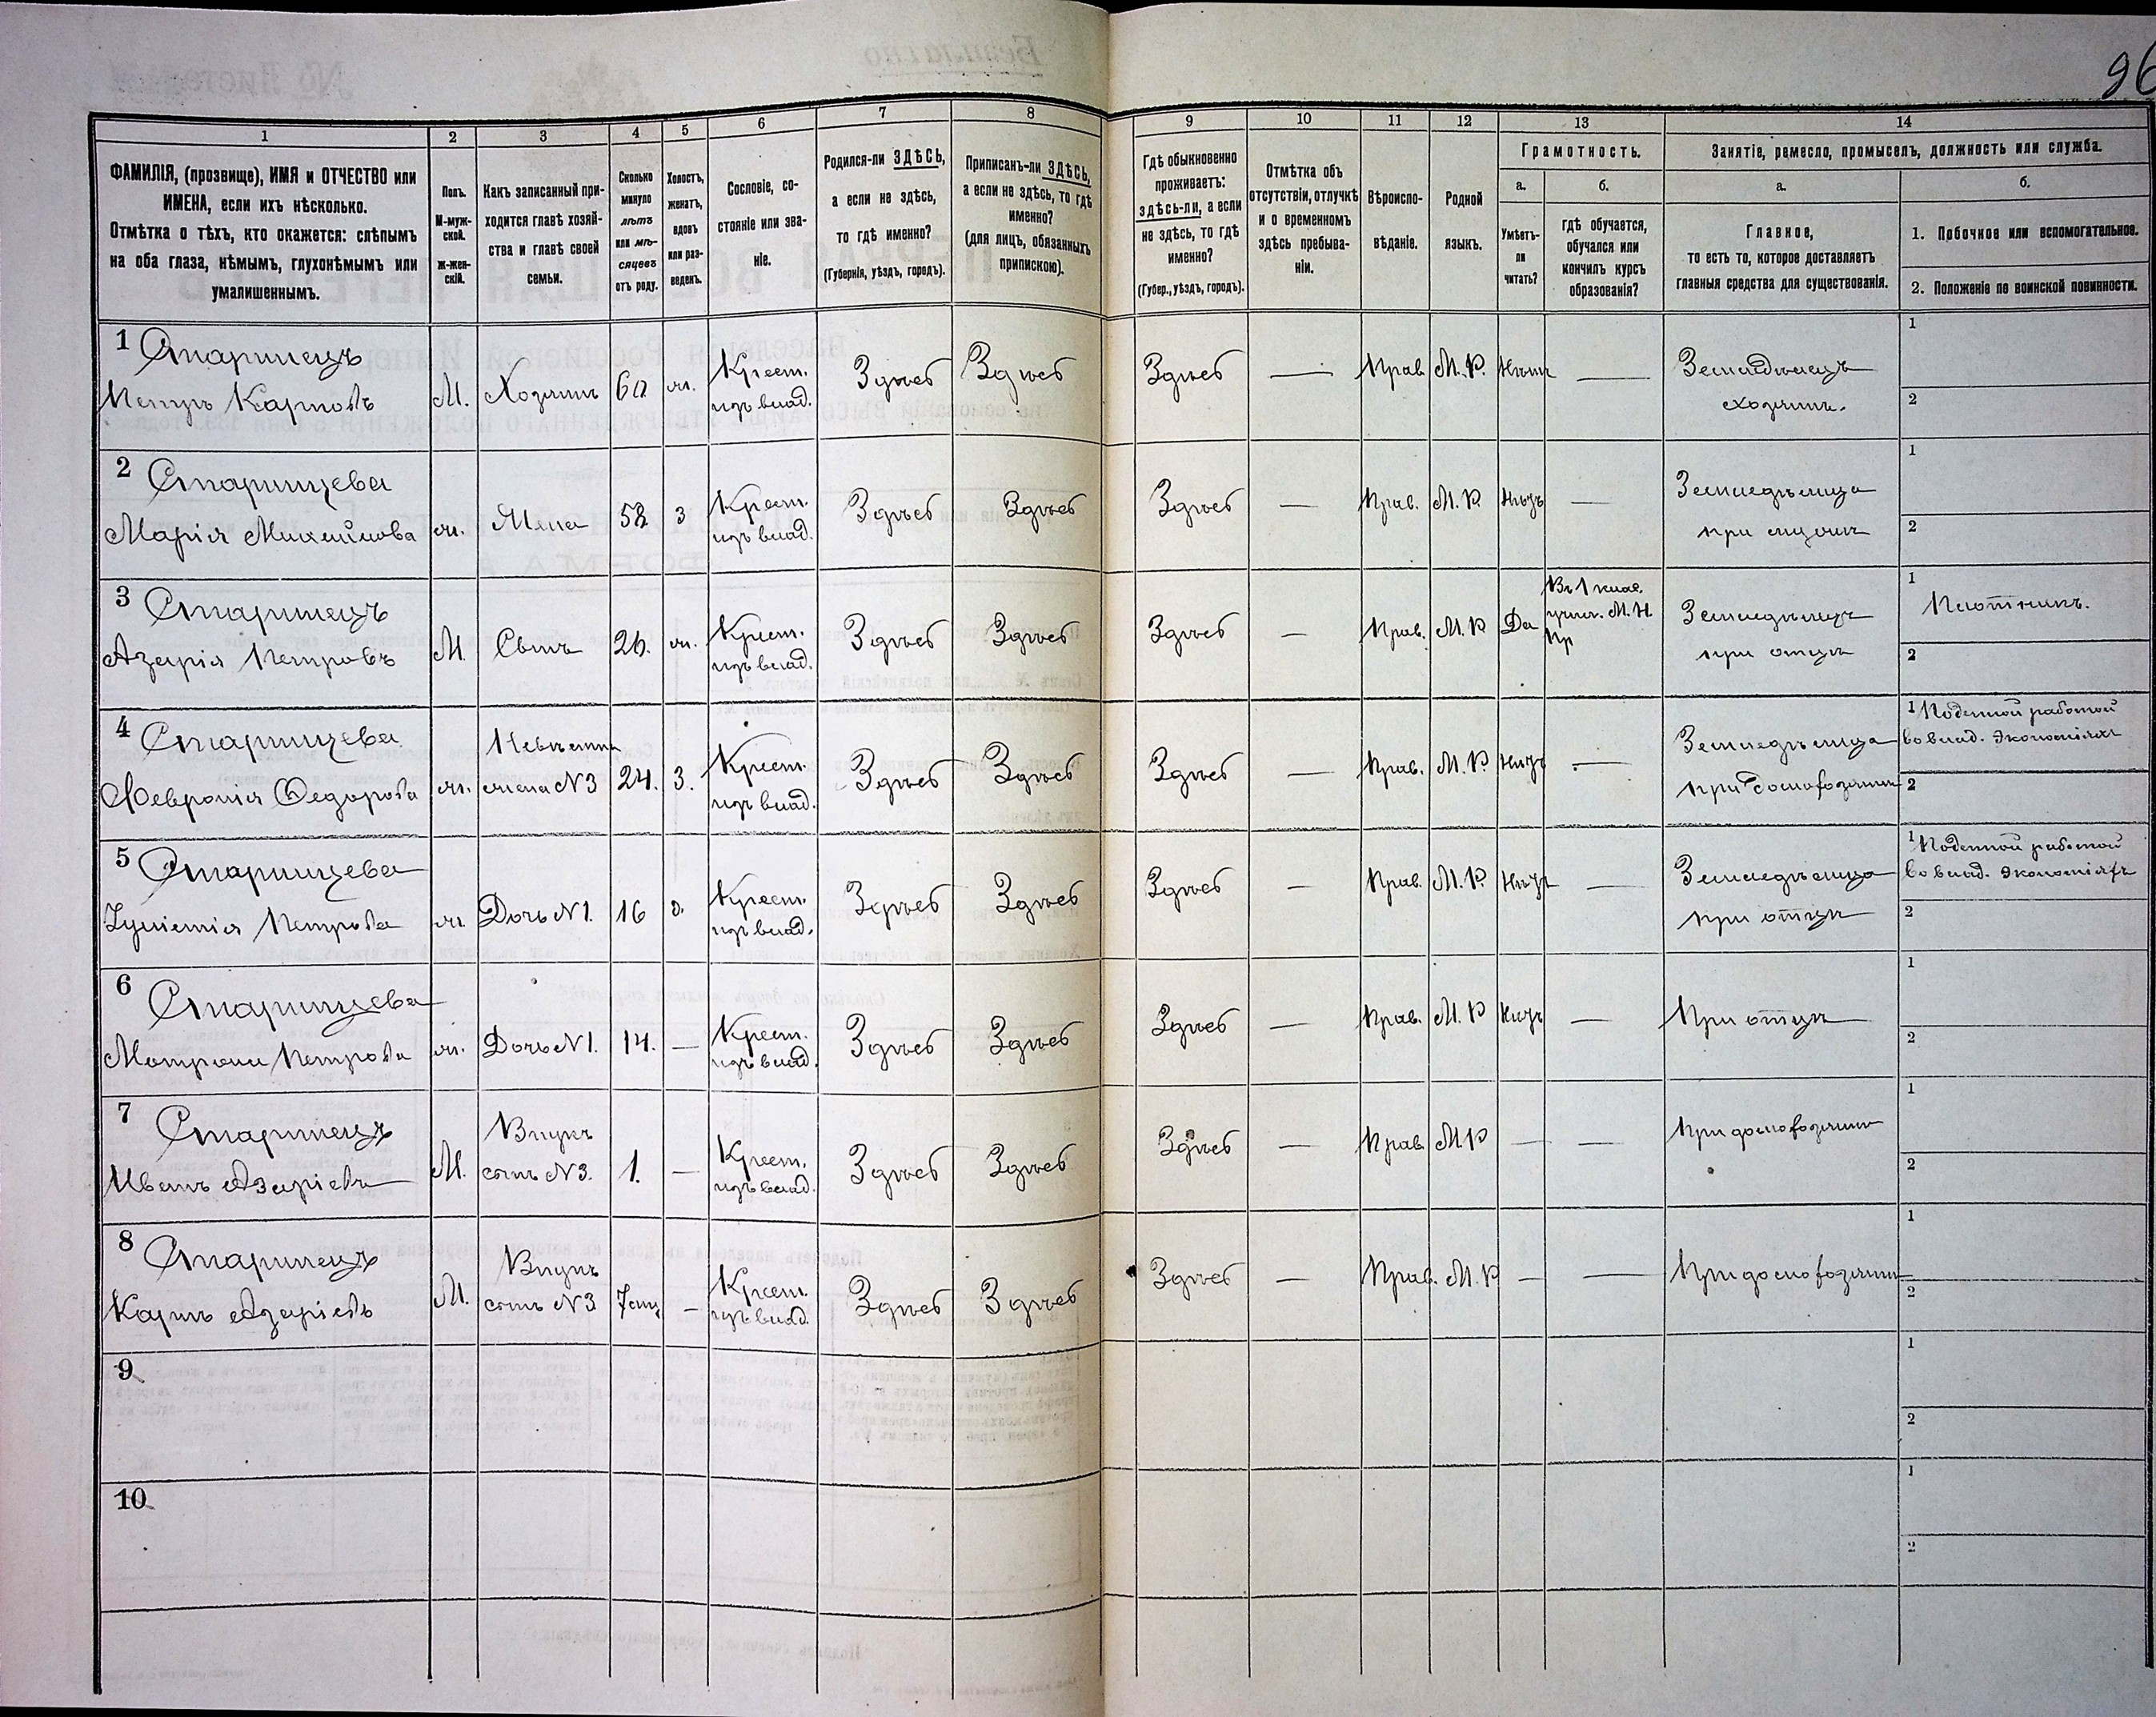 96
1 2 3 4 5 6 7 8 9 10 11 12 13 14
ФАМИЛІЯ, (прозвище), ИМЯ и ОТЧЕСТВО или
ИМЕНА, если ихъ нѣсколько.
Отмѣтка о тѣхъ, кто окажется: слѣпымъ
на оба глаза, нѣмымъ, глухонѣмымъ или
умалишеннымъ.
Полъ.
М-муж-
ской.
ж-жен-
скій.
Какъ записанный при-
ходится главѣ хозяй-
ства и главѣ своей
семьи.
Сколько
минуло
лѣтъ
или мѣ-
сяцевъ
отъ роду.
Холостъ,
женатъ,
вдовъ
или раз-
веденъ.
Сословіе, со-
стояніе или зва-
ніе.
Родился-ли ЗДѢСЬ,
а если не здѣсь,
то гдѣ именно?
(Губернія, уѣздъ, городъ).
Приписанъ-ли ЗДѢСЬ,
а если не здѣсь, то гдѣ
именно?
(для лицъ, обязанныхъ
припискою).
Гдѣ обыкновенно
проживаетъ:
здѣсь-ли, а если
не здѣсь, то гдѣ
именно?
(Губер., уѣздъ, городъ).
Отмѣтка объ
отсутствіи, отлучкѣ
и о временномъ
здѣсь пребыва-
ніи.
Вѣроиспо-
вѣданіе.
Родной
языкъ.
Грамотность.
а.
Умѣетъ-
ли
читать?
б.
гдѣ обучается,
обучался или
кончилъ курсъ
образованія?
Занятіе, ремесло, промыселъ, должность или служба.
а.
Главное,
то есть то, которое доставляетъ
главныя средства для существованія.
б.
1. Побочное или вспомогательное.
2. Положеніе по воинской повинности.
1 Старинецъ
Петръ Карповъ М. Хозяинъ 60 ж. Крест. изъ влад. Здѣсь Здѣсь Здѣсь — Прав. М. Р. Нѣтъ — Земледѣлецъ хозяинъ. 1 2
2 Старинцева
Марія Михайлова ж. Жена 58 з Крест. изъ влад. Здѣсь Здѣсь Здѣсь — Прав. М. Р. Нѣтъ — Земледѣлица при мужѣ 1 2
3 Старинецъ
Азарія Петровъ М. Сынъ 26. ж. Крест. изъ влад. Здѣсь Здѣсь Здѣсь — Прав. М. Р Да Въ 1 клас. учил. М. Н. Пр Земледѣлецъ при отцѣ 1 Плотникъ. 2
4 Старинцева
Февронія Ѳедорова ж. Невѣстка жена N3 24. з. Крест. изъ влад. Здѣсь Здѣсь Здѣсь — Прав. М. Р. Нѣтъ — Земледѣлица при домохозяинѣ 1 Поденной работой во влад. экономіяхъ 2
5 Старинцева
Іулианія Петрова ж. Дочь N1. 16 д. Крест. изъ влад. Здѣсь Здѣсь Здѣсь — Прав. М. Р. Нѣтъ — Земледѣлица при отцѣ 1 Поденной работой во влад. экономіяхъ 2
6 Старинцева
Матрона Петрова ж. Дочь N1. 14. — Крест. изъ влад. Здѣсь Здѣсь Здѣсь — Прав. М. Р Нѣтъ — При отцѣ 1 2
7 Старинецъ
Иванъ Азаріевъ М. Внукъ сынъ N3. 1. — Крест. изъ влад. Здѣсь Здѣсь Здѣсь — Прав. М Р — — При домохозяинѣ 1 2
8 Старинецъ
Карпъ Азаріевъ М. Внукъ сынъ N3 7 — Крест. изъ влад. Здѣсь Здѣсь Здѣсь — Прав. М. Р — — При домохозяинѣ 1 2
9 1 2
10 1 2